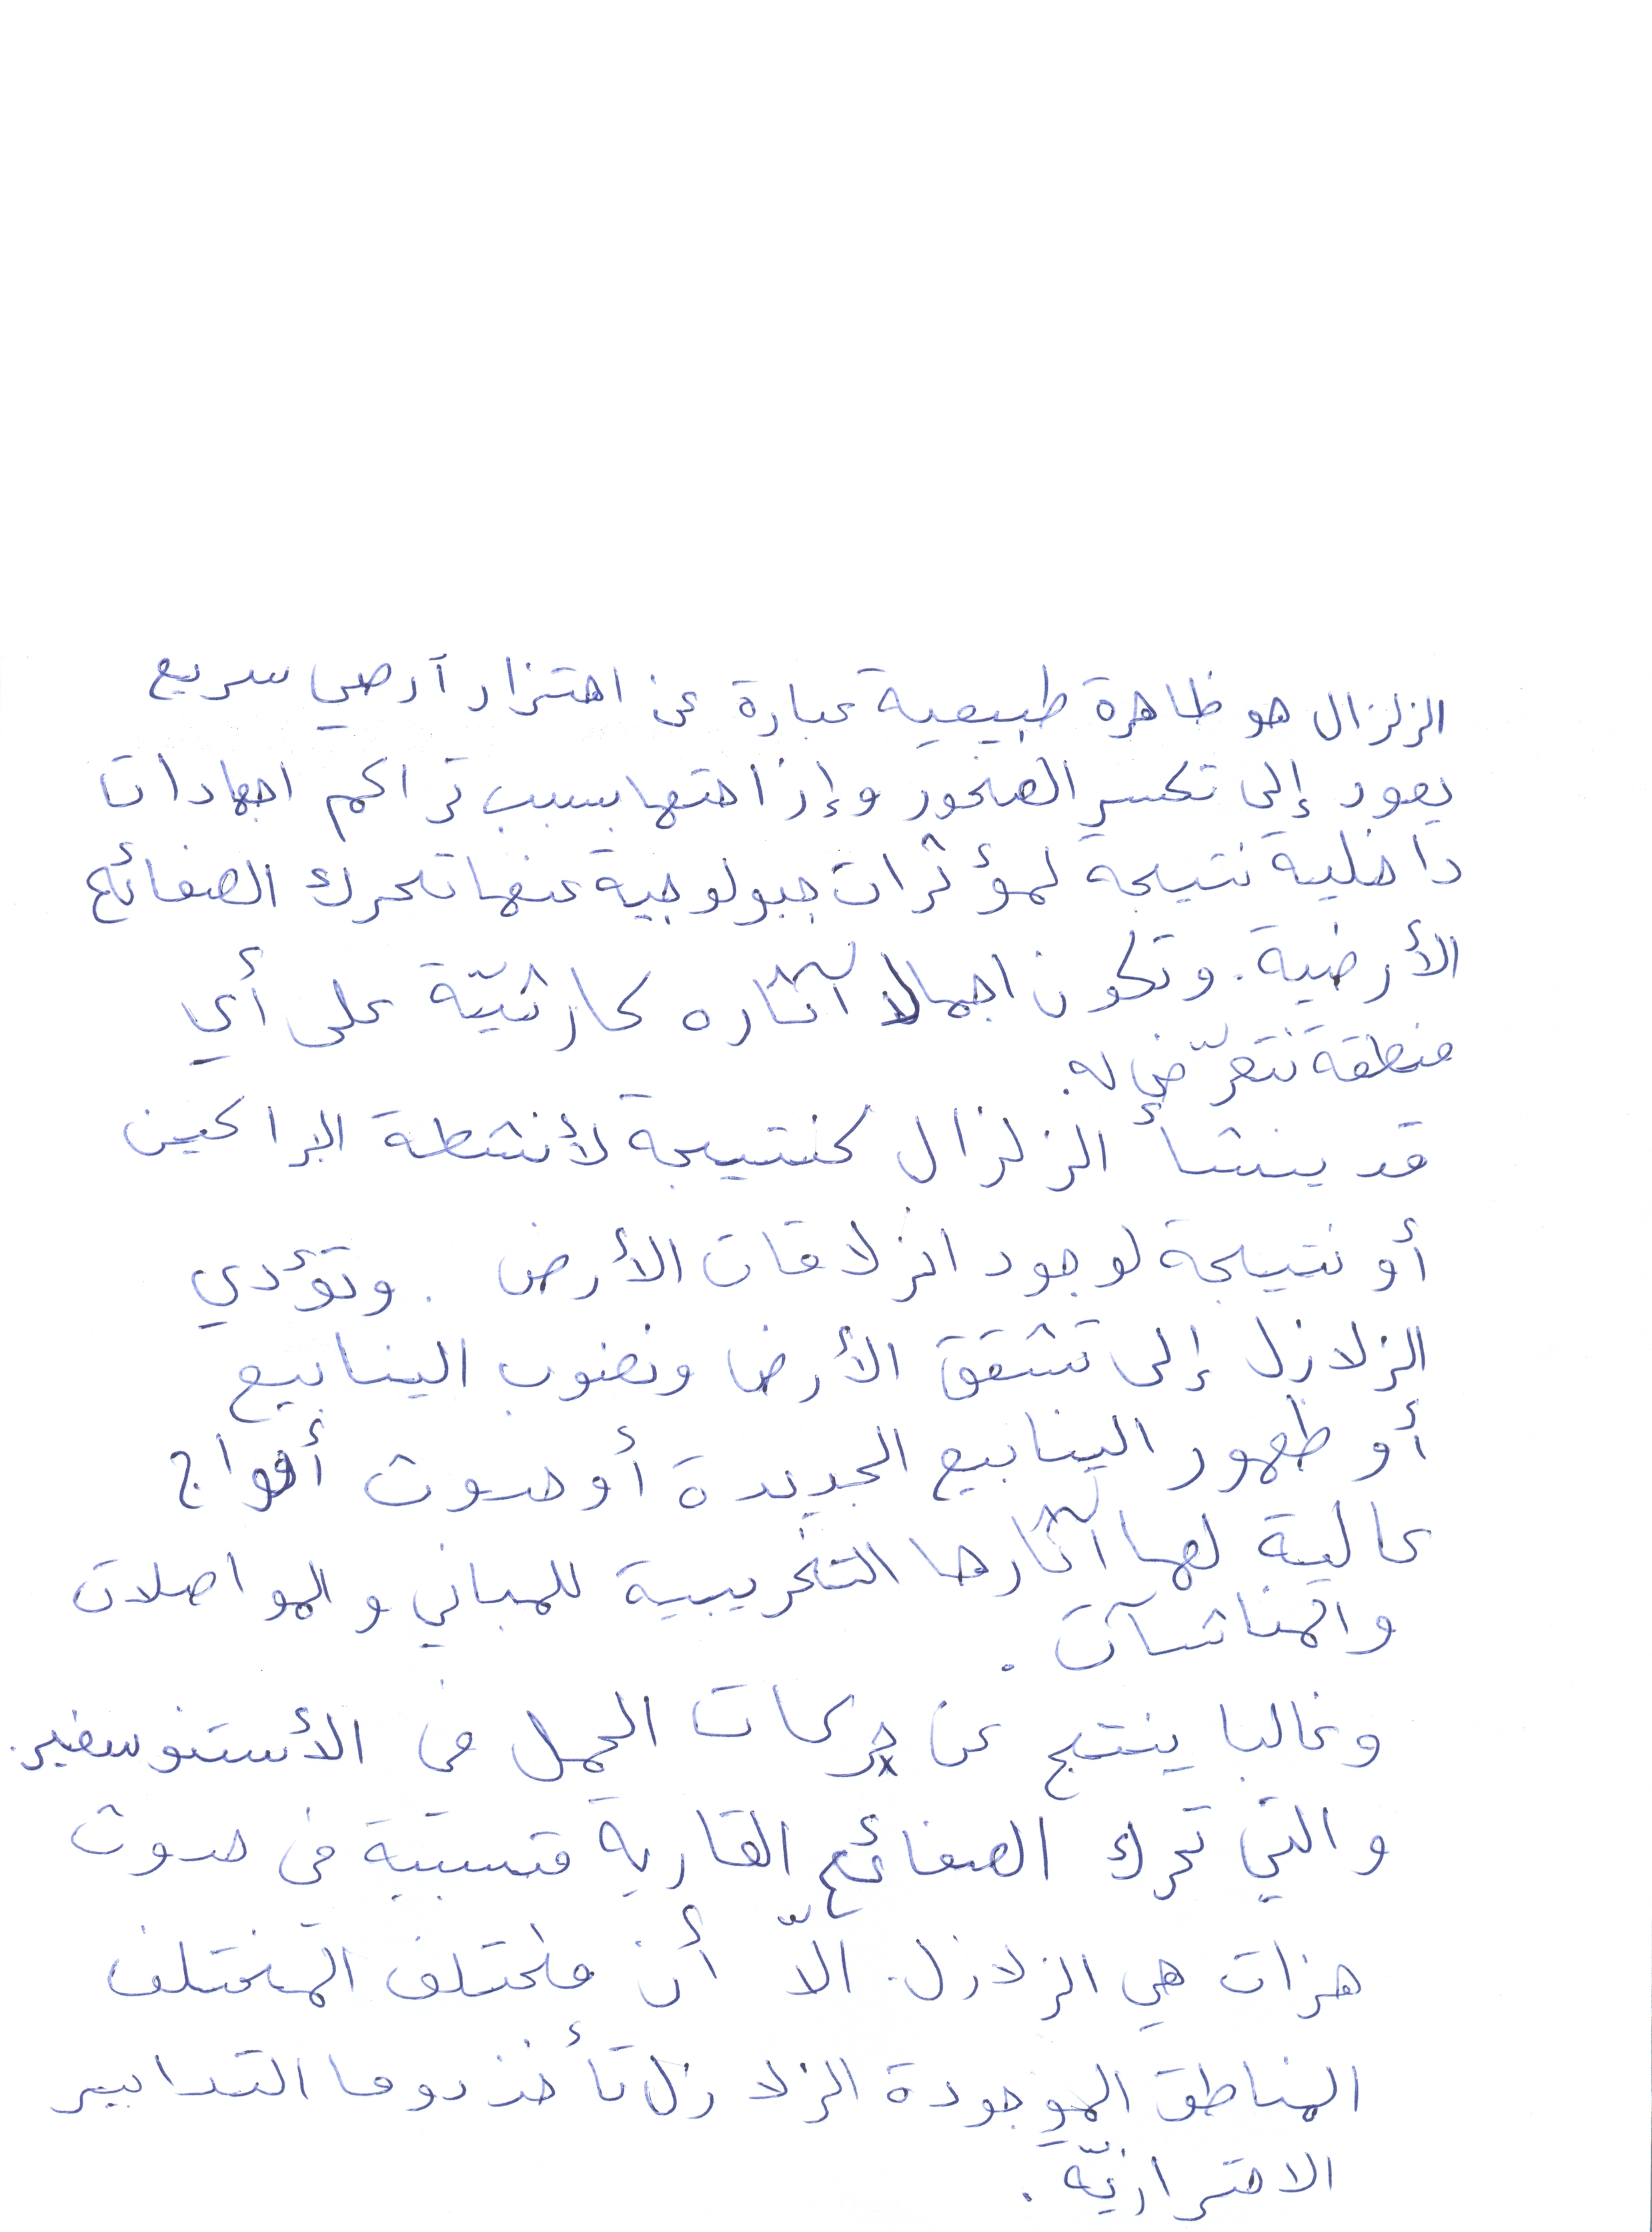 الزلزال هو ظاهرة طبيعية عبارة عن اهتزاز أرضي سريع
يعود إلى تكسر الصخور وإزاحتها بسبب تراكم اجهادات
داخلية نتيجة لمؤثرات جيولوجية عنها تحرك الصفائح
الأرضية. وتكون اجمالا آثاره كارثيّة على أي
منطقة تتعرّض له.
قد ينشأ الزلزال كنتيجة لأنشطة البراكين
أو نتيجة لوجود انزلاقات الأرض . وتؤدي
الزلازل إلى تشقق الأرض ونضوب الينابيع
أو ظهور الينابيع الجديدة أو حدوث أمواج
عالية لها آثارها التخريبية للمباني والمواصلات
والمناشآت .
وغالبا ينتج عن حركات الحمل في الأستنوسفير.
والتي تحرك الصفائح القارية متسببة في حدوث
هزات هي الزلازل. الاّ أن مختلف المختلف
المناطق الموجودة الزلازل تأخذ دوما التدابير
الاحترازيّة .